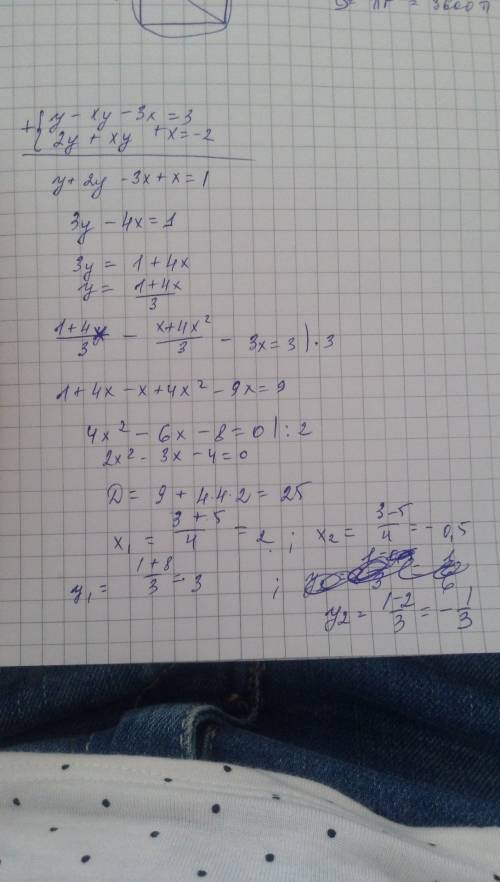 = 3600π
y - xy - 3x = 3
+{ 2y + xy + x = -2
y + 2y - 3x + x = 1
3y - 4x = 1
3y = 1 + 4x
y = (1+4x)/3
(1+4x)/3 - (x+4x²)/3 - 3x = 3 | · 3
1 + 4x - x + 4x² - 9x = 9
4x² - 6x - 8 = 0 | : 2
2x² - 3x - 4 = 0
D = 9 + 4·4·2 = 25
x₁ = (3+5)/4 = 2 ; x₂ = (3-5)/4 = -0,5
y₁ = (1+8)/3 = 3 ;
y₂ = (1-2)/3 = -1/3